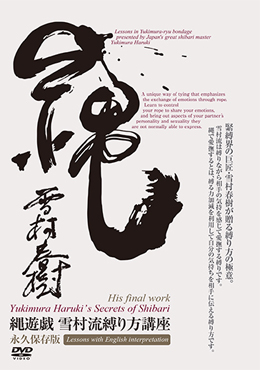 Lessons in Yukimura-ryu bondage
presented by Japan's great shibari master
Yukimura Haruki
縄
A unique way of tying that emphasizes
the exchange of emotions through rope.
Learn to control
your rope to share your emotions,
and bring out aspects of your partner's
personality and sexuality they
are not normally able to express.
緊縛界の巨匠・雪村春樹が贈る縛り方の極意。
雪村流は縛りながら相手の気持を感じて愛撫する縛りです。
縄で愛撫するとは、縛る力加減を利用して自分の気持ちを相手に伝える縛り方です。
雪村春樹
His final work
Yukimura Haruki's Secrets of Shibari
縄遊戯 雪村流縛り方講座
永久保存版 Lessons with English interpretation
DVD
VIDEO